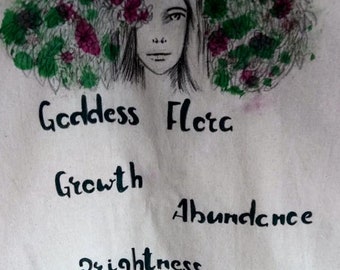 Goddess Flora
Growth
Abundance
Brightness